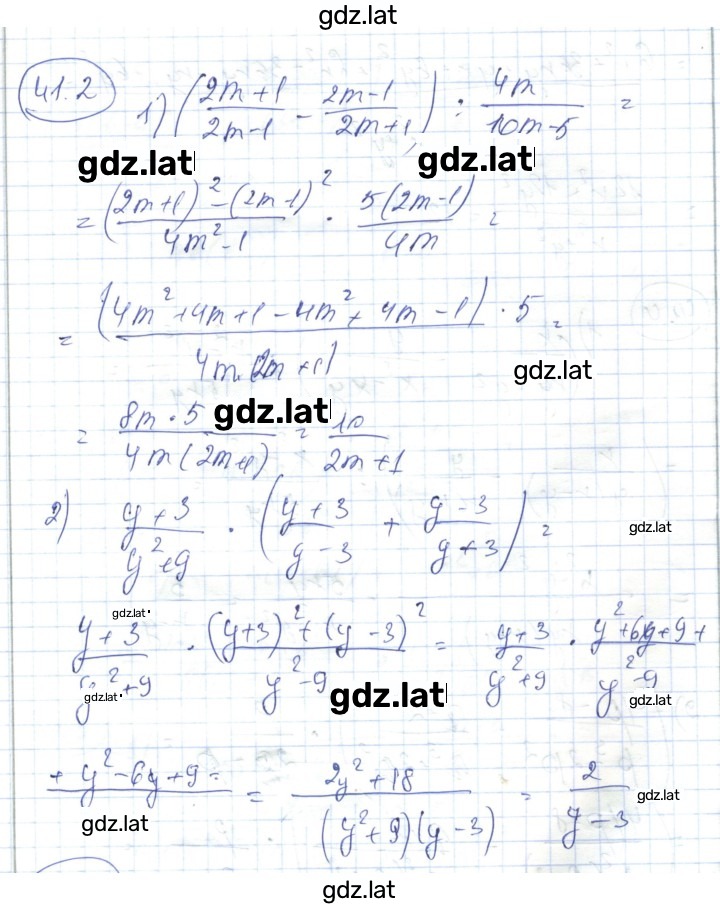 gdz.lat
41.2
1) ((2m+1)/(2m-1) - (2m-1)/(2m+1)) : 4m/(10m-5) =
gdz.lat gdz.lat
= ((2m+1)² - (2m-1)²)/(4m²-1) · 5(2m-1)/4m =
= (4m²+4m+1-4m²+4m-1) · 5/(4m(2m+1)) =
gdz.lat
= 8m·5/(4m(2m+1)) = 10/(2m+1)
gdz.lat
2) (y+3)/(y²+9) · ((y+3)/(y-3) + (y-3)/(y+3)) =
gdz.lat
gdz.lat
(y+3)/(y²+9) · ((y+3)²+(y-3)²)/(y²-9) = (y+3)/(y²+9) · (y²+6y+9+)/(y²-9)
gdz.lat gdz.lat gdz.lat
+y²-6y+9 = = (2y²+18)/((y²+9)(y-3)) = 2/(y-3)
gdz.lat gdz.lat
gdz.lat